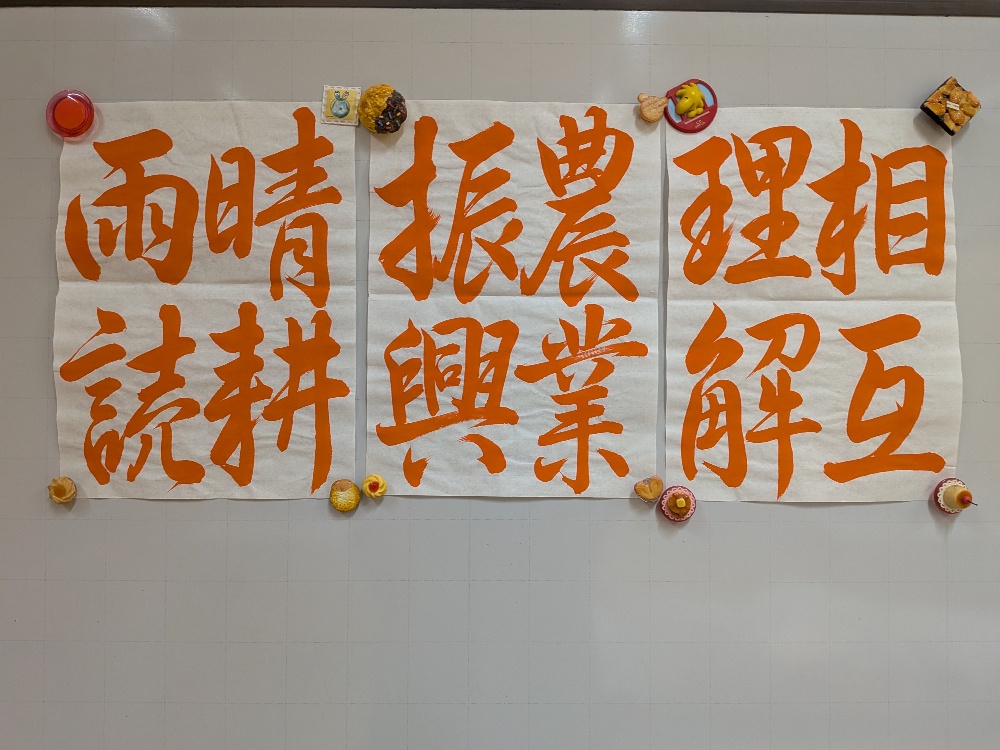 相互
理解
農業
振興
晴耕
雨読